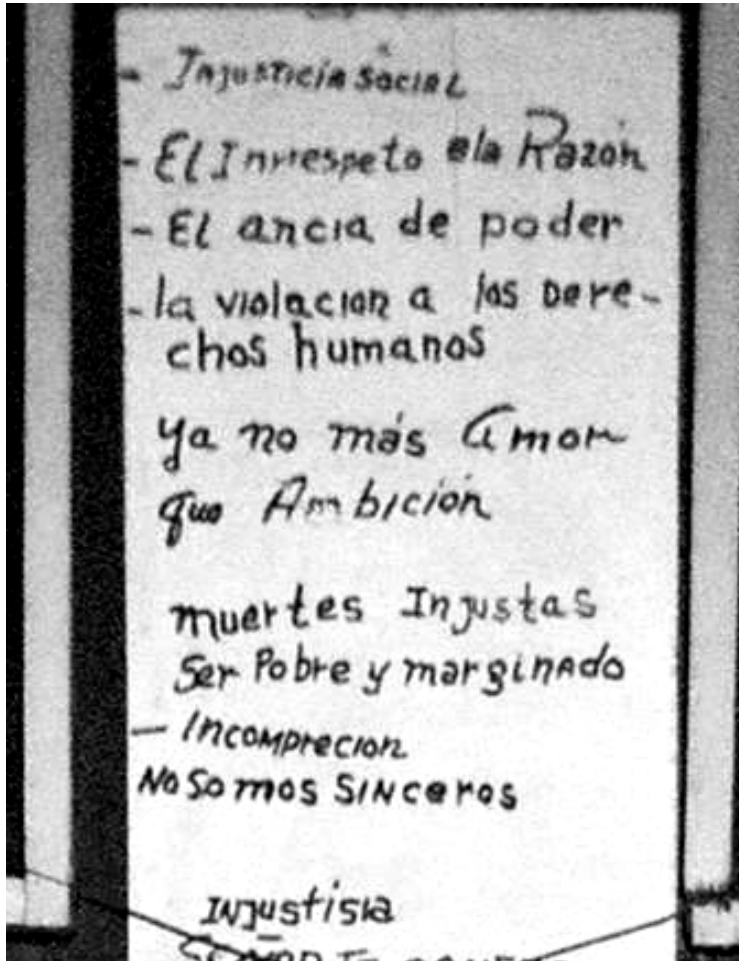 - Injusticia social
- El Inrrespeto ala Razón
- El ancia de poder
- la violacion a los Dere-
chos humanos
ya no más Amor
que Ambición
muertes Injustas
Ser Pobre y marginado
- Incomprecion
No Somos Sinceros
INjustisia